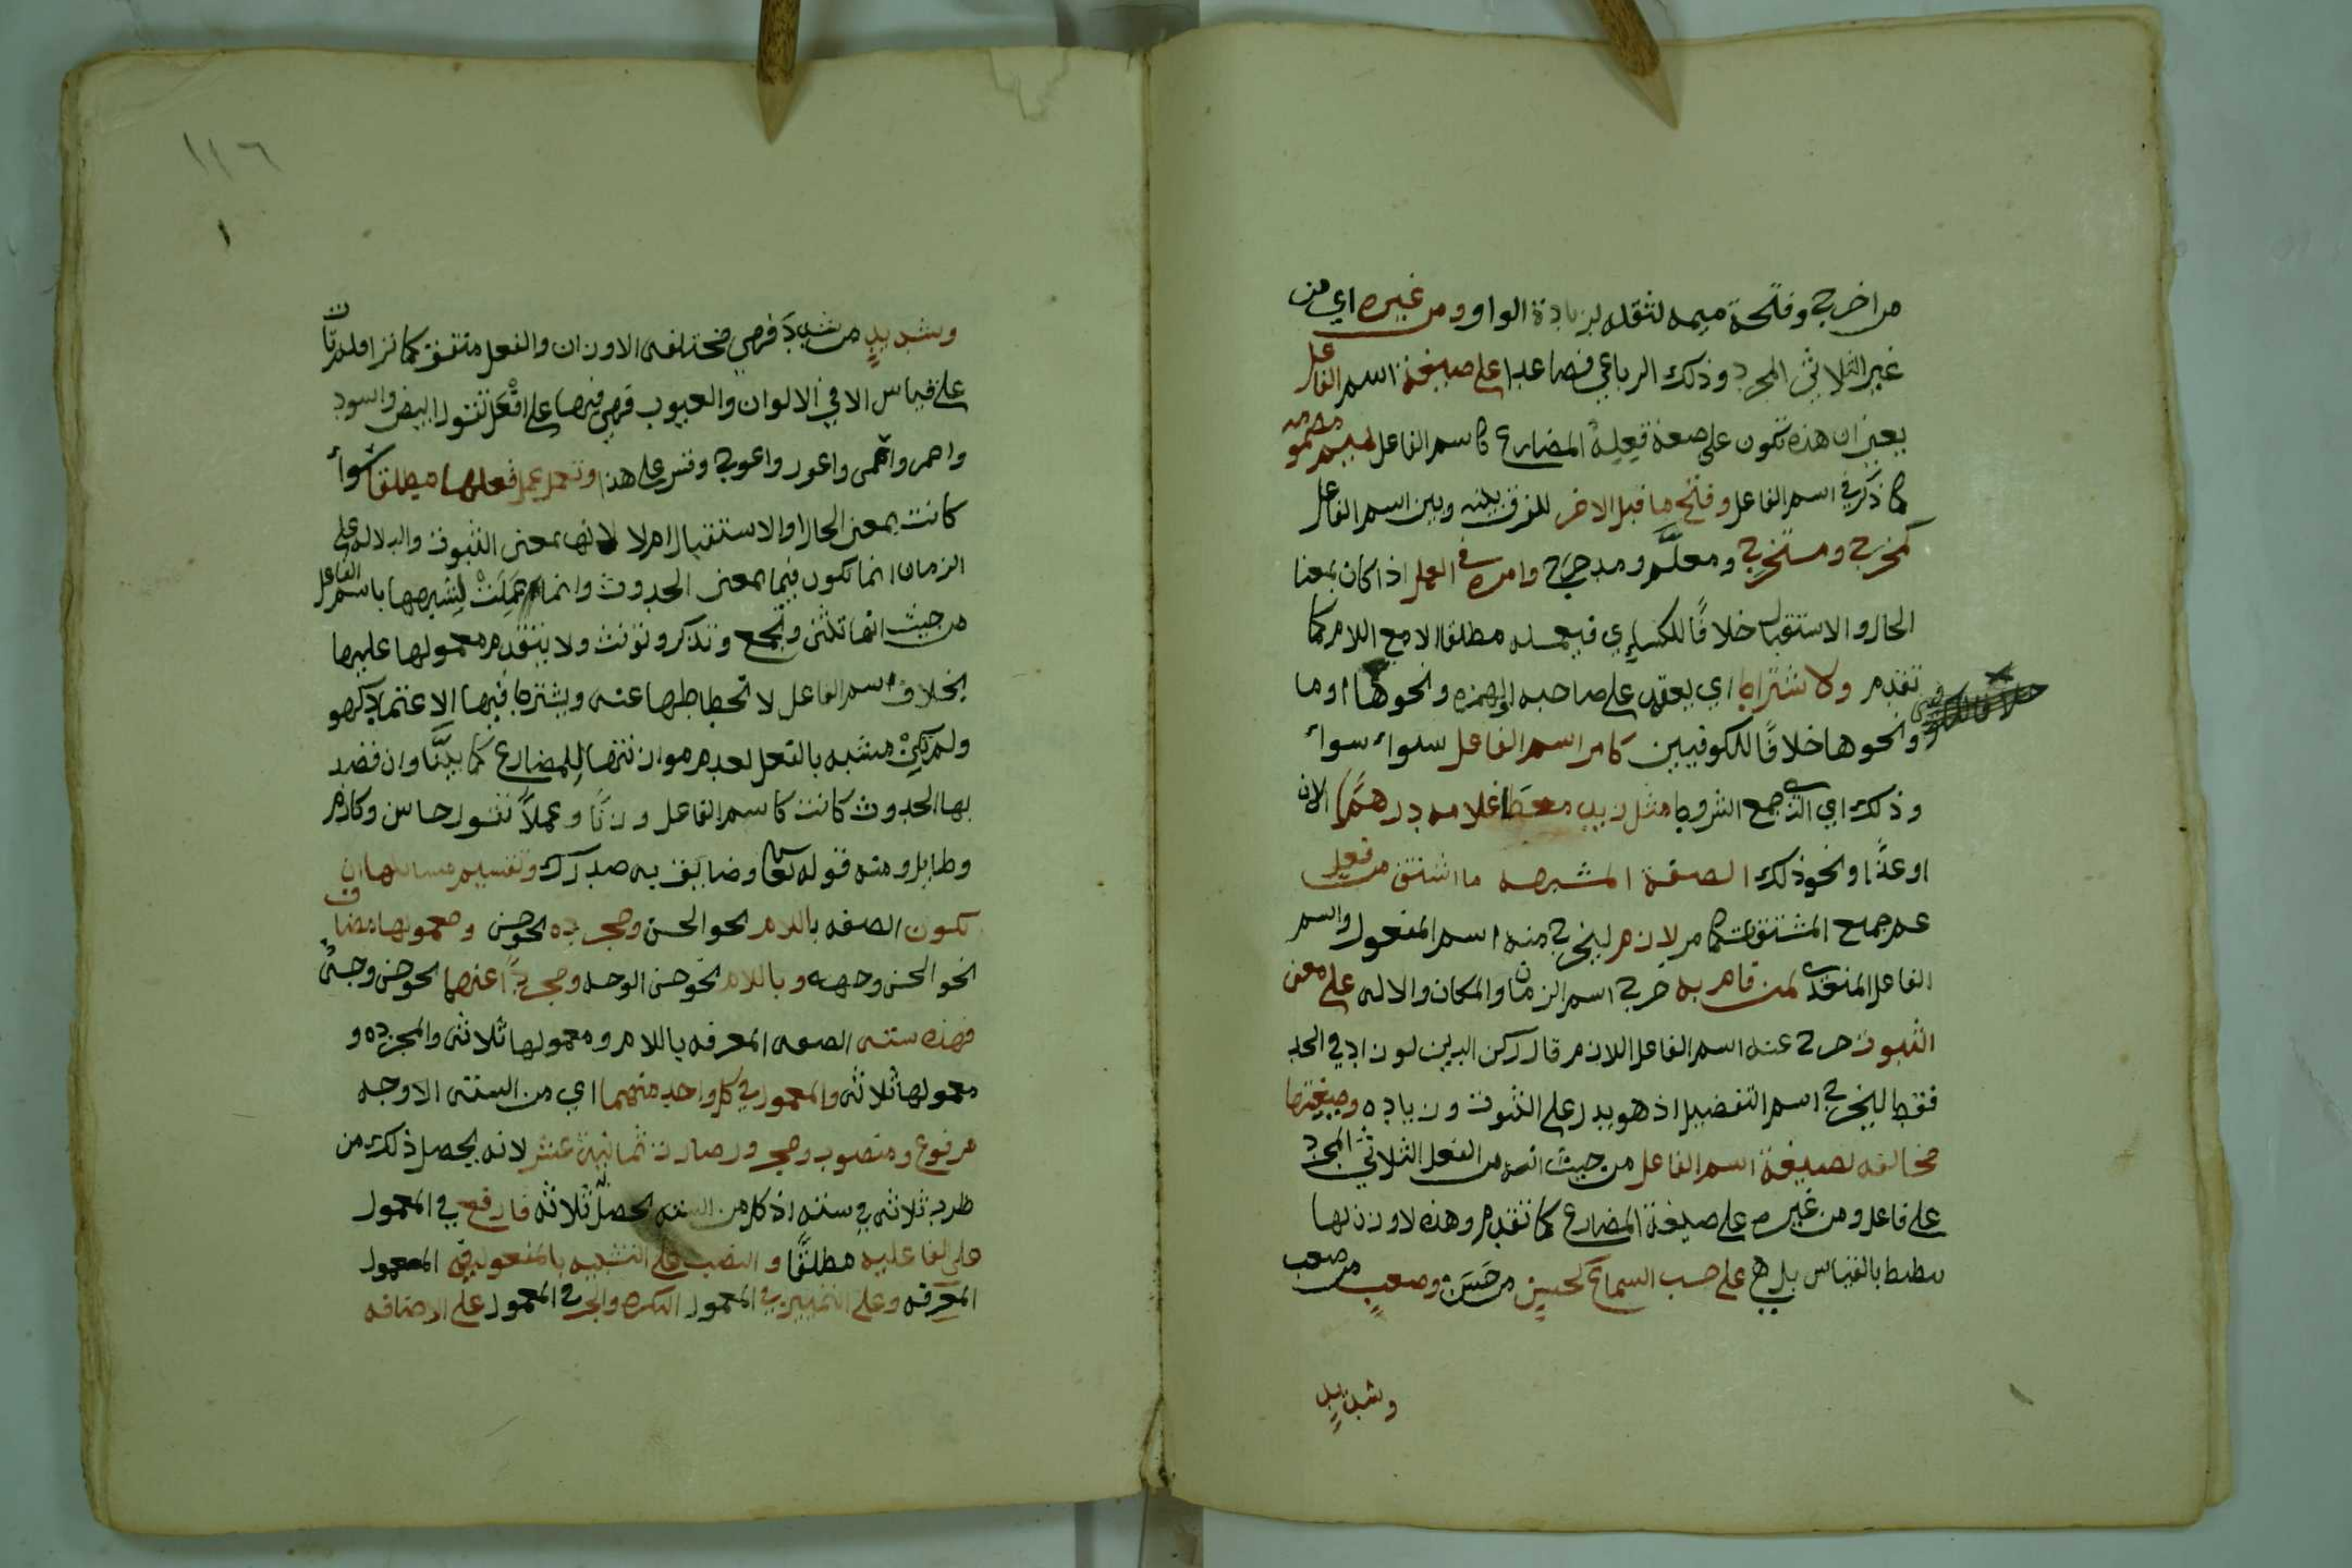 من اخرج وفتحة ميمه لثقله بزيادة الواو ومن غيره اي من
غير الثلاثي المجرد وذلك الرباعي فصاعدا على صيغة اسم الفاعل
يعني ان هذه تكون على صيغة فعله المضارع كاسم الفاعل بميم مضمومه
كما ذكر في اسم الفاعل وفتح ما قبل الاخر للفرق بينه وبين اسم الفاعل
كمخرج ومستخرج ومعلَّم ومدحرج وامره في العمل اذا كان بمعنا
الحال والاستقبال خلافًا للكساي فيعمله مطلقا الا مع اللام كما
تقدم والاشتراط اي يعتمد على صاحبه او الهمزه ونحوها او ما
ونحوها خلافًا للكوفيين كامر اسم الفاعل سواء سواء
وذلك اي الذي جمع الشروط مثل زيد معطا غلامه درهمًا الان
او غدًا ونحو ذلك الصفة المشبهه ما اشتق من فعل
عم جميع المشتقات كما مر لازم ليخرج منه اسم المفعول واسم
الفاعل المتعدي لمن قام به خرج اسم الزمان والمكان والاله على معنى
الثبوت خرج عنه اسم الفاعل اللازم قال ركن الدين لو زاد في الحد
فقط ليخرج اسم التفضيل اذ هو يدل على الثبوت وزياده وصيغتها
مخالفه لصيغة اسم الفاعل من حيث انه من الفعل الثلاثي المجرد
على فاعل ومن غيره على صيغة المضارع كما تقدم وهذه لا وزن لها
بالقياس بل هي على حسب السماع كحسن من حسَن وصعب من صعب
وشديد
١٢٦
١
وشديد من شدد فهي مختلفه الاوزان والفعل متفق كما تراه لم تات
على قياس الا في الالوان والعيوب فهي فيها على افْعَل تقول ابيض واسود
واحمر واعمى واعور واعوج وقس على هذا وتعمل عمل فعلها مطلقا سواء
كانت بمعنى الحال او الاستقبال ام لا لانها بمعنى الثبوت والدلاله على
الزمان انما تكون فيما بمعنى الحدوث وانما عَمِلَتْ لشبهها باسم الفاعل
من حيث انها تثنى وتجمع وتذكر وتونث ولا يتقدم معمولها عليها
بخلاف اسم الفاعل لانحطاطها عنه ويشترط فيها الاعتماد كهو
ولم تكن مشبه بالفعل لعدم موازنتها للمضارع كما بينَّا وان قصد
بها الحدوث كانت كاسم الفاعل وزنًا وعملاً تقول حاسن وكارم
وطايل ومنه قوله تعالى وضايق به صدرك وتقسيم مسائلها ان
تكون الصفه باللام نحو الحسن ومجرده نحو حسن ومعمولها مضاف
نحو الحسن وجهه وباللام نحو حسن الوجه ومجردًا عنهما نحو حسن وجه
فهذه سته الصفه المعرفه باللام ومعمولها ثلاثه والمجرده و
معمولها ثلاثه والمعمول في كل واحد منهما اي من السته الاوجه
مرفوع ومنصوب ومجرور صارت ثمانية عشر لانه يحصل ذلك من
ضرب ثلاثه في سته اذ كل من السته يحصل ثلاثه فالرفع في المعمول
على الفاعليه مطلقًا والنصب على التشبيه بالمفعول في المعمول
المعرفه وعلى التمييز في المعمول النكره والجر في المعمول على الاضافه